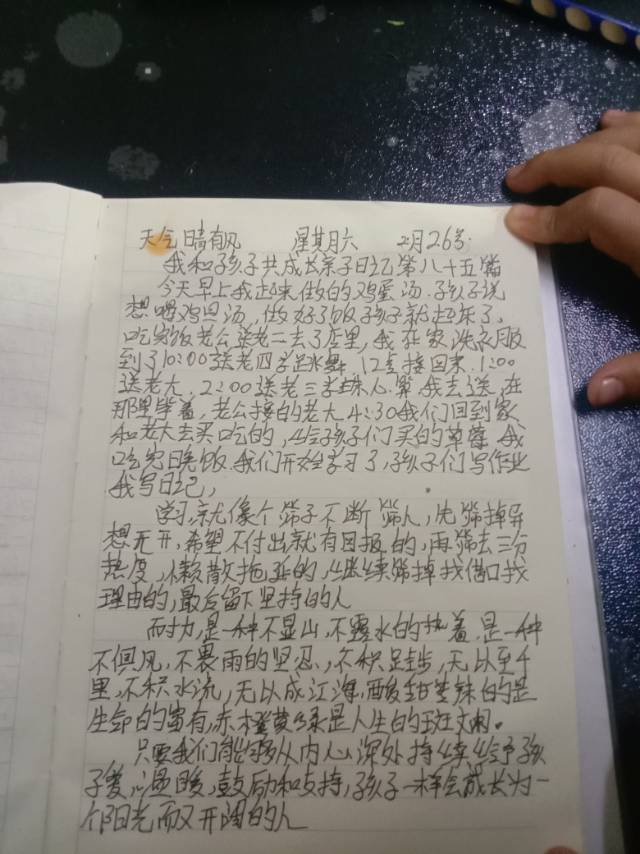 天气晴有风 星期六 2月26号.
我和孩子共成长亲子日记第八十五篇
今天早上我起来做的鸡蛋汤.孩子说
想喝鸡蛋汤,做好了饭孩子就起来了.
吃完饭老公送老二去了店里,我在家洗衣服
到了10:00送老四学跳舞.12点接回来.1:00
送老大.2:00送老三学珠心算.我去送.在
那里等着,老公接的老大.4:30我们回到家
和老大去买吃的,给孩子们买的草莓.我
吃完晚饭.我们开始学习了,孩子们写作业
我写日记,
学习,就像个筛子不断筛人,先筛掉异
想天开,希望不付出就有回报的,再筛去三分
热度,懒散拖延的,继续筛掉找借口找
理由的,最后留下坚持的人
耐力,是一种不显山,不露水的执着.是一种
不惧风,不畏雨的坚忍,不积跬步,无以至千
里,不积水流,无以成江海,酸甜苦辣的是
生命的富有,赤橙黄绿是人生的斑斓。
只要我们能够从内心深处持续给予孩
子爱,温暖,鼓励和支持,孩子一样会成长为一
个阳光而又开阔的人